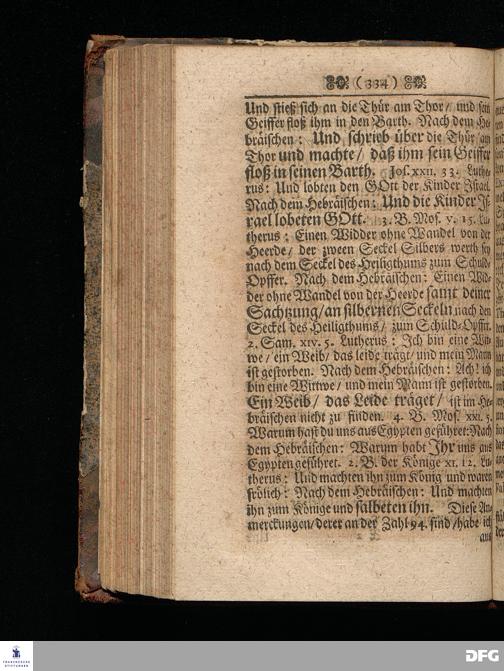 ( 334 )
Und stieß sich an die Thür am Thor / und sein
Geiffer floß ihm in den Barth. Nach dem He-
bräischen: Und schrieb über die Thür am
Thor und machte / daß ihm sein Geiffer
floß in seinen Barth. Jos. XXII. 33. Luthe-
rus: Und lobten den GOtt der Kinder Israel.
Nach dem Hebräischen: Und die Kinder Is-
rael lobeten GOtt. 3. B. Mos. V. 15. Lu-
therus: Einen Widder ohne Wandel von der
Heerde / der zween Seckel Silbers werth sey
nach dem Seckel des Heiligthums zum Schuld-
Opffer. Nach dem Hebräischen: Einen Wid-
der ohne Wandel von der Heerde samt deiner
Schatzung / an silbernen Seckeln nach dem
Seckel des Heiligthums / zum Schuld-Opffer.
2. Sam. XIV. 5. Lutherus: Ich bin eine Wit-
we / ein Weib / das leide trägt / und mein Mann
ist gestorben. Nach dem Hebräischen: Ach! ich
bin eine Wittwe / und mein Mann ist gestorben.
Ein Weib / das Leide träget / ist im He-
bräischen nicht zu finden. 4. B. Mos. XXI. 5.
Warum hast du uns aus Egypten geführet: Nach
dem Hebräischen: Warum habt Ihr uns aus
Egypten geführet. 2. B. der Könige XI. 12. Lu-
therus: Und machten ihn zum König und waren
frölich: Nach dem Hebräischen: Und machten
ihn zum Könige und salbeten ihn. Diese An-
merckungen / derer an der Zahl 94. sind / habe ich
aus
FRANCKESCHE
STIFTUNGEN
DFG